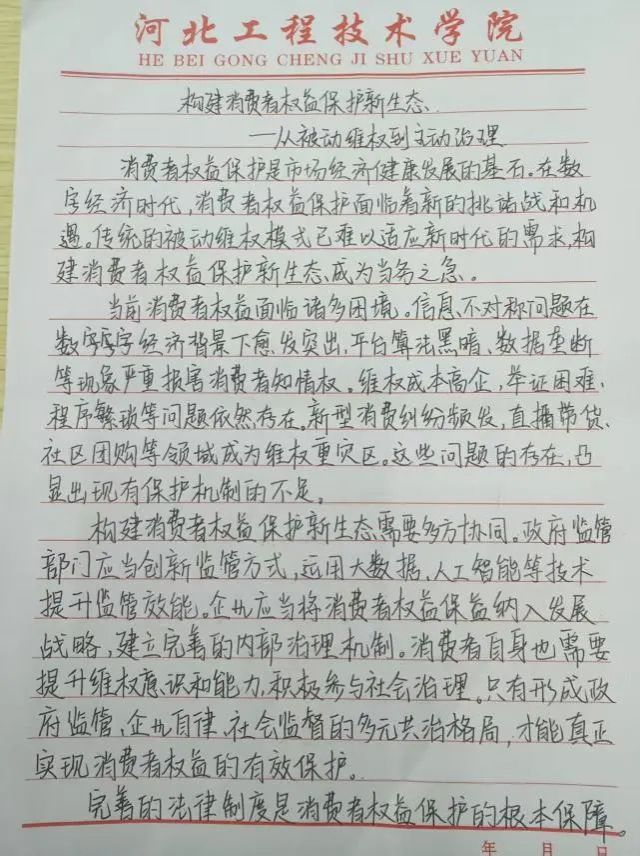 河北工程技术学院
HE BEI GONG CHENG JI SHU XUE YUAN
构建消费者权益保护新生态
——从被动维权到主动治理
消费者权益保护是市场经济健康发展的基石。在数
字经济时代,消费者权益保护面临着新的挑战和机
遇。传统的被动维权模式已难以适应新时代的需求,构
建消费者权益保护新生态成为当务之急。
当前消费者权益面临诸多困境。信息不对称问题在
数字经济背景下愈发突出,平台算法黑暗、数据垄断
等现象严重损害消费者知情权。维权成本高企,举证困难、
程序繁琐等问题依然存在。新型消费纠纷频发,直播带货、
社区团购等领域成为维权重灾区。这些问题的存在,凸
显出现有保护机制的不足。
构建消费者权益保护新生态需要多方协同。政府监管
部门应当创新监管方式,运用大数据、人工智能等技术
提升监管效能。企业应当将消费者权益保益纳入发展
战略,建立完善的内部治理机制。消费者自身也需要
提升维权意识和能力,积极参与社会治理。只有形成政
府监管、企业自律、社会监督的多元共治格局,才能真正
实现消费者权益的有效保护。
完善的法律制度是消费者权益保护的根本保障。
年 月 日